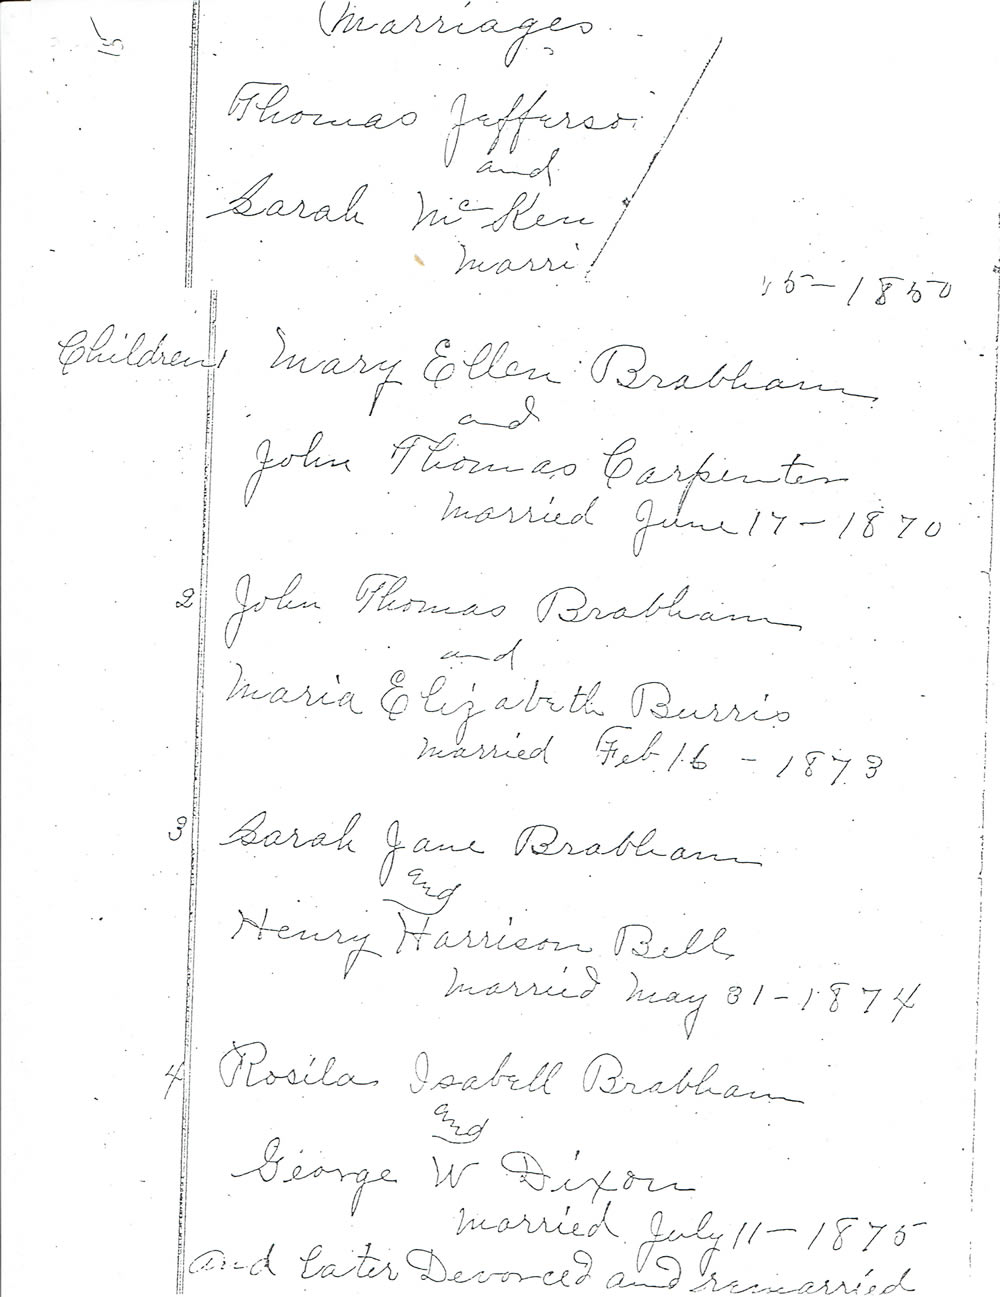 15
Marriages
Thomas Jefferso
and
Sarah McKen
Marri
15-1850
Children 1 Mary Ellen Brabham
and
John Thomas Carpenter
Married June 17-1870
2 John Thomas Brabham
and
Maria Elizabeth Burris
Married Feb 16-1873
3 Sarah Jane Brabham
and
Henry Harrison Bell
Married May 31-1874
4 Rosila Isabell Brabham
and
George W Dixon
Married July 11-1875
and Later Devorced and remarried